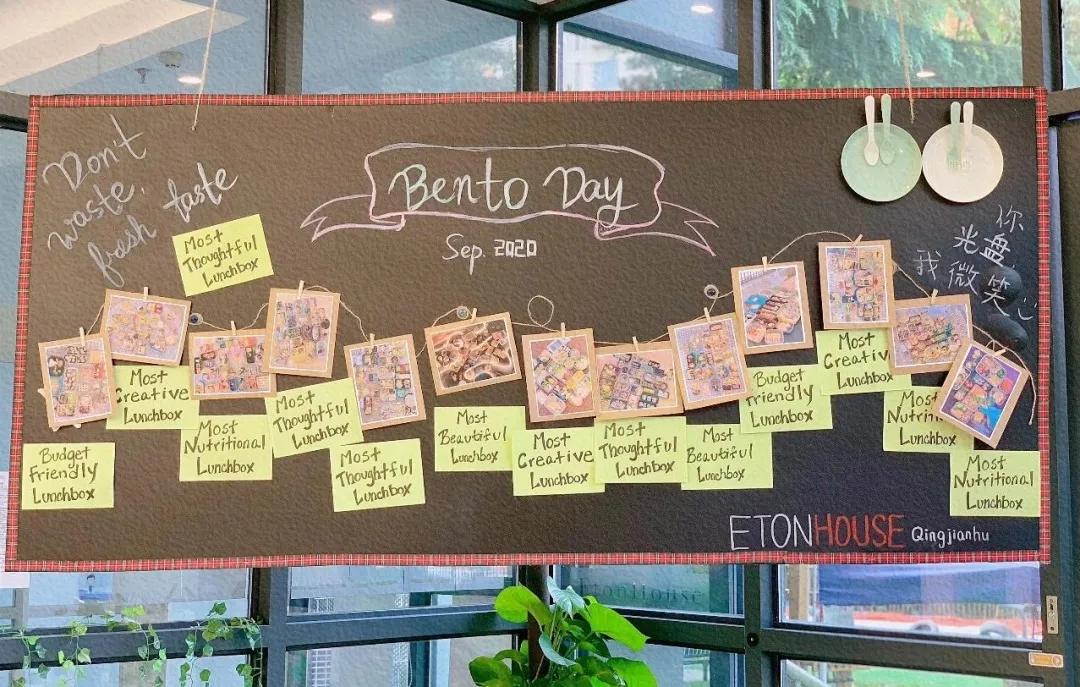 Don't
waste.
fresh taste
Bento Day
Sep. 2020
你
光盘
我微笑
Most
Thoughtful
Lunchbox
Budget
Friendly
Lunchbox
Most
Creative
Lunchbox
Most
Nutritional
Lunchbox
Most
Thoughtful
Lunchbox
Most
Thoughtful
Lunchbox
Most
Beautiful
Lunchbox
Most
Creative
Lunchbox
Most
Thoughtful
Lunchbox
Most
Beautiful
Lunchbox
Budget
Friendly
Lunchbox
Most
Creativ
Lunchbox
Most
Nutri
Lunchbox
Most
Nutritional
Lunchbox
ETONHOUSE Qingjianhu